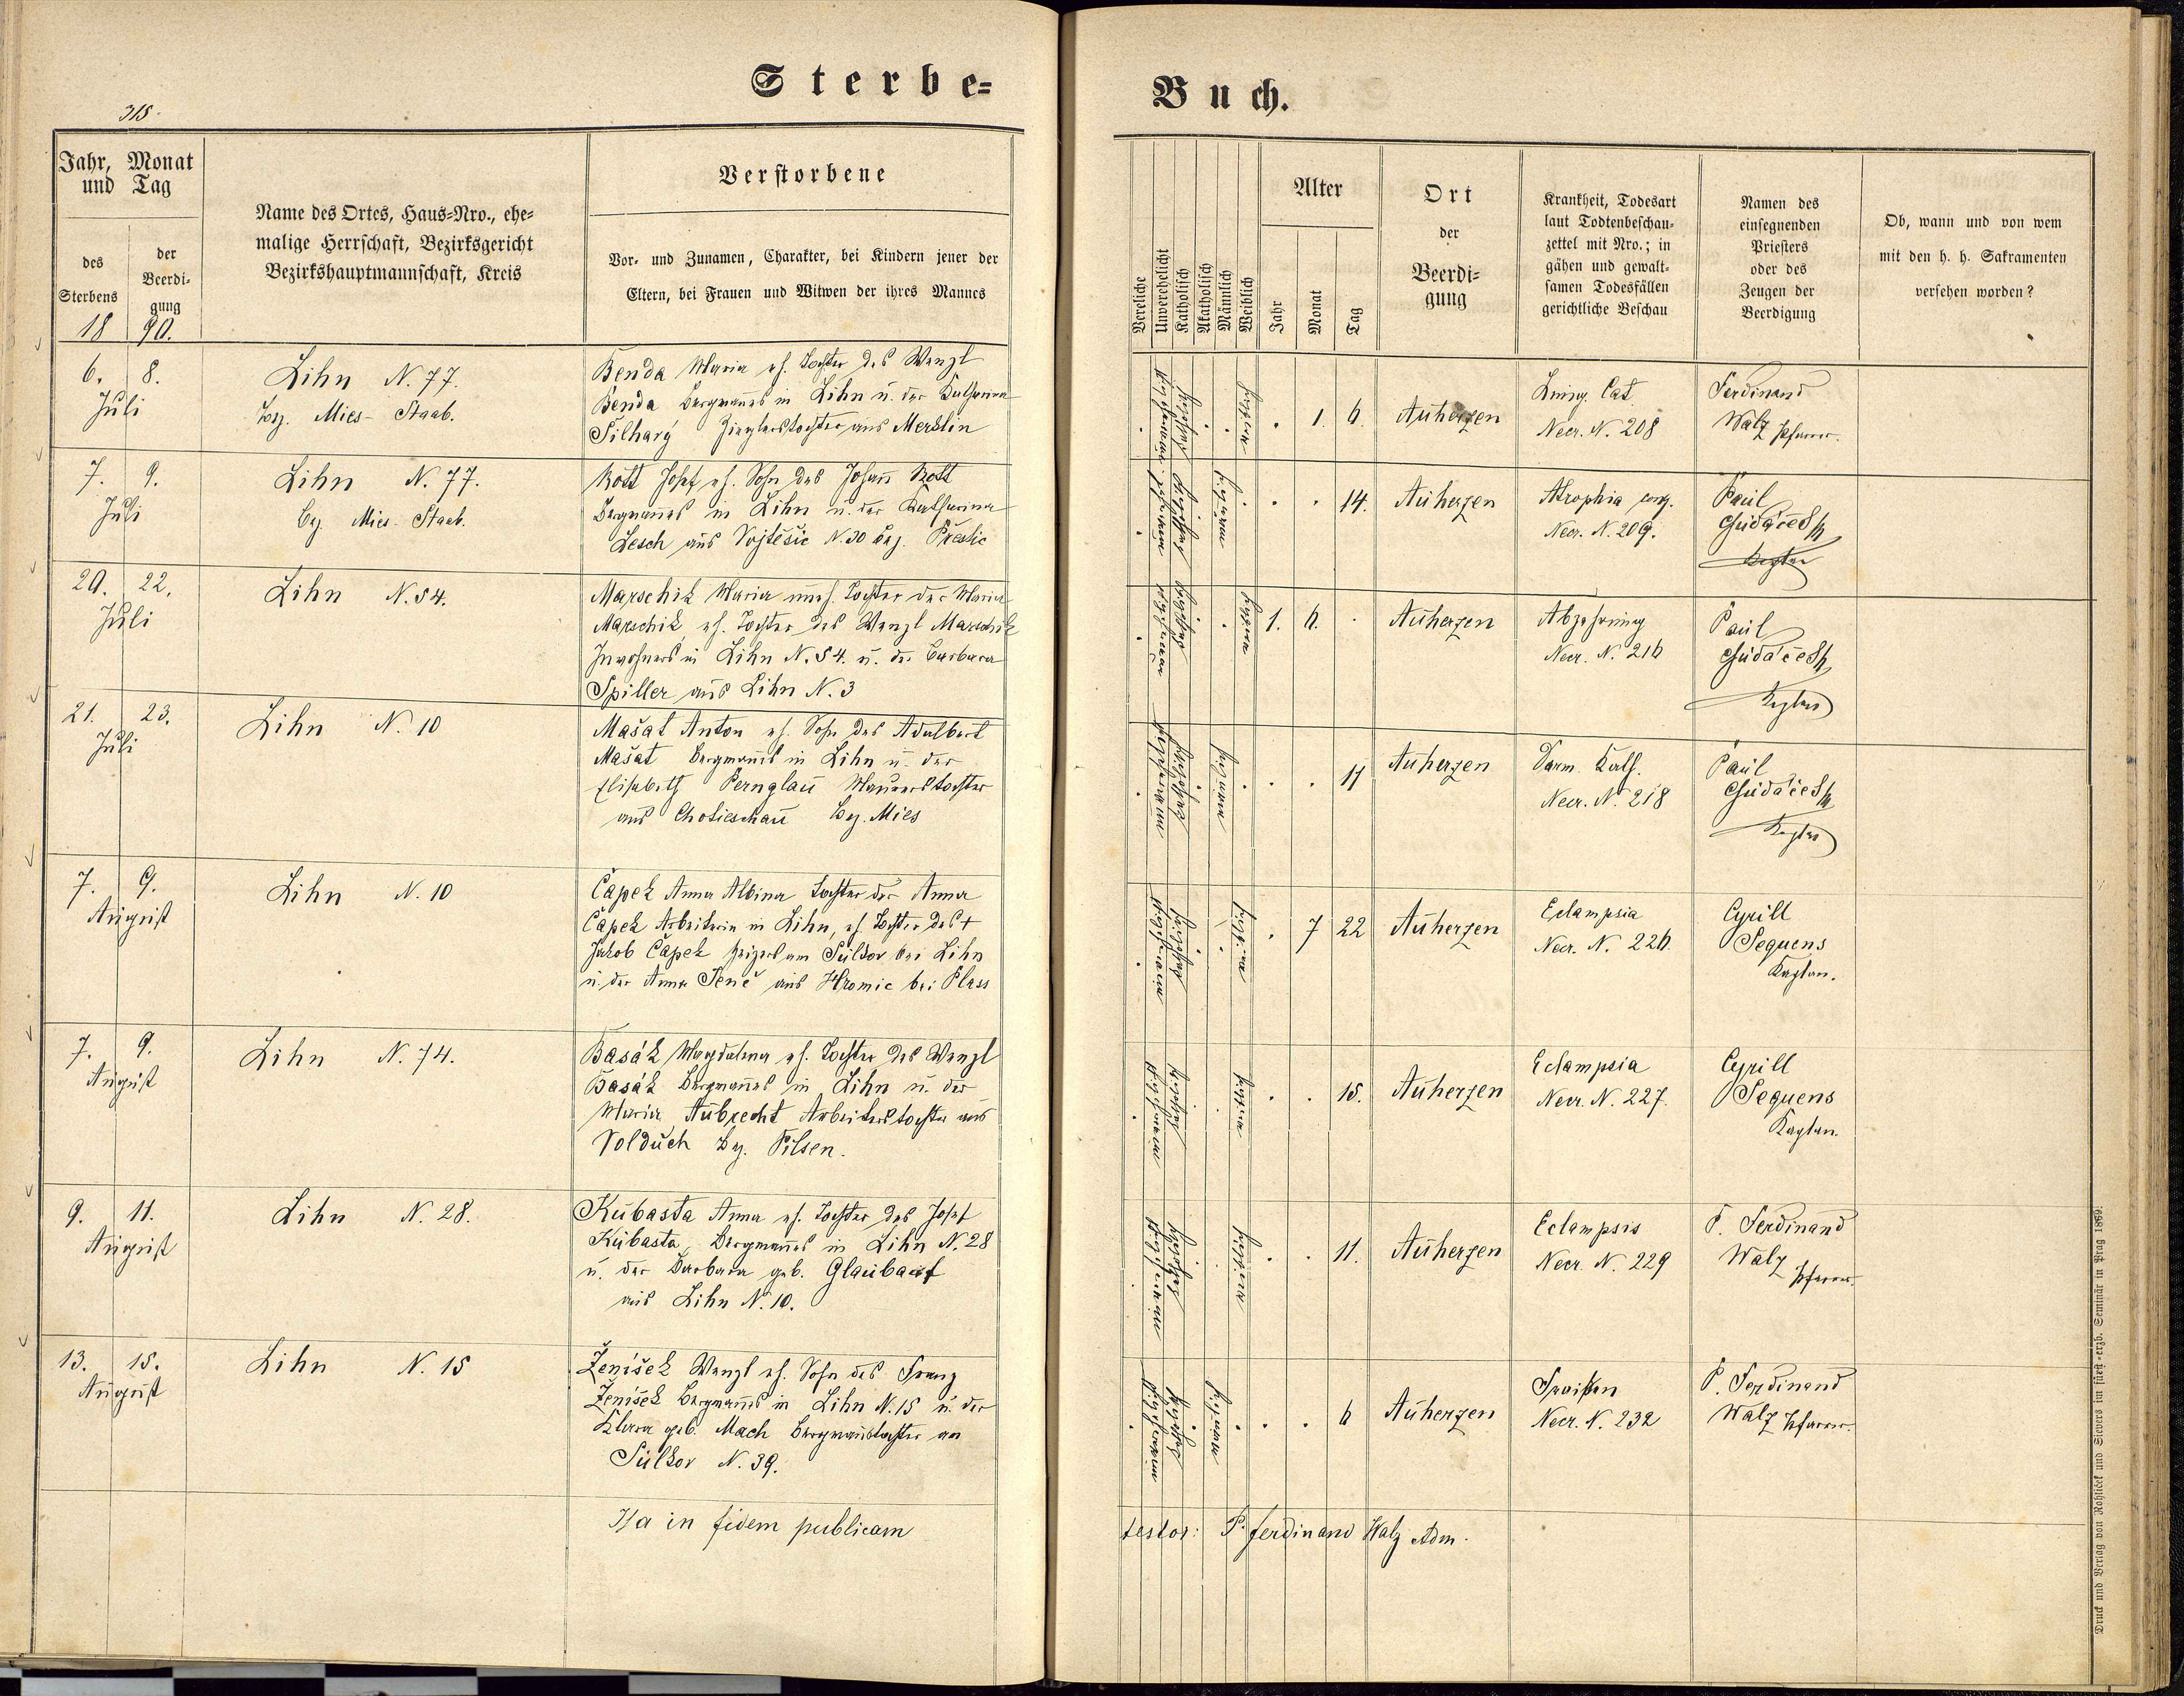 Sterbe-
Buch.
318.
Jahr, Monat
und Tag
des
Sterbens
der
Beerdi-
gung
1890.
Name des Ortes, Haus-Nro., ehe-
malige Herrschaft, Bezirksgericht
Bezirkshauptmannschaft, Kreis
Verstorbene
Vor- und Zunamen, Charakter, bei Kindern jener der
Eltern, bei Frauen und Witwen der ihres Mannes
Vereliche
Unverehelicht
Katholisch
Akatholisch
Männlich
Weiblich
Alter
Jahr
Monat
Tag
Ort
der
Beerdi-
gung
Krankheit, Todesart
laut Todtenbeschau-
zettel mit Nro.; in
gähen und gewalt-
samen Todesfällen
gerichtliche Beschau
Namen des
einsegnenden
Priesters
oder des
Zeugen der
Beerdigung
Ob, wann und von wem
mit den h. h. Sakramenten
versehen worden?
6. 8.
Juli
Lihn N. 77.
Bez. Mies-Staab.
Benda Maria eh. Tochter des Wenzl
Benda Bergmanns in Lihn u. der Katharina
Silhavý Zieglerstochter aus Merklin
1. 6. Auherzen
Lung. Cat
Necr. N. 208
Ferdinand
Walz Pfarrer.
7. 9.
Juli
Lihn N. 77.
Bez. Mies-Staab.
Rott Josef eh. Sohn des Johann Rott
Bergmannes in Lihn u. der Katharina
Lesch aus Vojtěšic N. 30 Bez. Přestic
14. Auherzen
Atrophia cong.
Necr. N. 209.
Paul
Chudáček
Kaplan
20. 22.
Juli
Lihn N. 54.
Marschik Maria uneh. Tochter der Maria
Marschik, eh. Tochter des Wenzl Marschik
Inwohners in Lihn N. 54. u. der Barbara
Spiller aus Lihn N. 3
1. 6. Auherzen
Abzehrung
Necr. N. 216
Paul
Chudáček
Kaplan
21. 23.
Juli
Lihn N. 10
Mašat Anton eh. Sohn des Adalbert
Mašat Bergmanns in Lihn u. der
Elisabeth Pernglau Maurerstochter
aus Chotieschau Bez. Mies
11 Auherzen
Darm. Kath.
Necr. N. 218
Paul
Chudáček
Kaplan
7. 9.
August
Lihn N. 10
Čapek Anna Albina Tochter der Anna
Čapek Arbeiterin in Lihn, eh. Tochter des +
Jakob Čapek Heizers am Sulkov bei Lihn
u. der Anna aus Hromic bei Plass
7 22 Auherzen
Eclampsia
Necr. N. 226.
Cyrill
Sequens
Kaplan.
7. 9.
August
Lihn N. 74.
Basák Magdalena eh. Tochter des Wenzl
Basák Bergmannes in Lihn u. der
Maria Aubrecht Arbeiterstochter aus
Volduch Bez. Pilsen.
15. Auherzen
Eclampsia
Necr. N. 227.
Cyrill
Sequens
Kaplan.
9. 11.
August
Lihn N. 28.
Kubasta Anna eh. Tochter des Josef
Kubasta, Bergmannes in Lihn N. 28
u. der Barbara geb. Glaubauf
aus Lihn N. 10.
11. Auherzen
Eclampsis
Necr. N. 229
P. Ferdinand
Walz Pfarrer.
13. 15.
August
Lihn N. 15
Ženišek Wenzl eh. Sohn des Franz
Ženišek Bergmanns in Lihn N. 15 u. der
Klara geb. Mach Bergmannstochter am
Sulkov N. 39.
6 Auherzen
Fraisen
Necr. N. 232
P. Ferdinand
Walz Pfarrer.
Ita in fidem publicam
testor: P. Ferdinand Walz Adm.
Druck und Verlag von Rohlíček und Sievers im fürst-erzb. Seminär in Prag 1869.